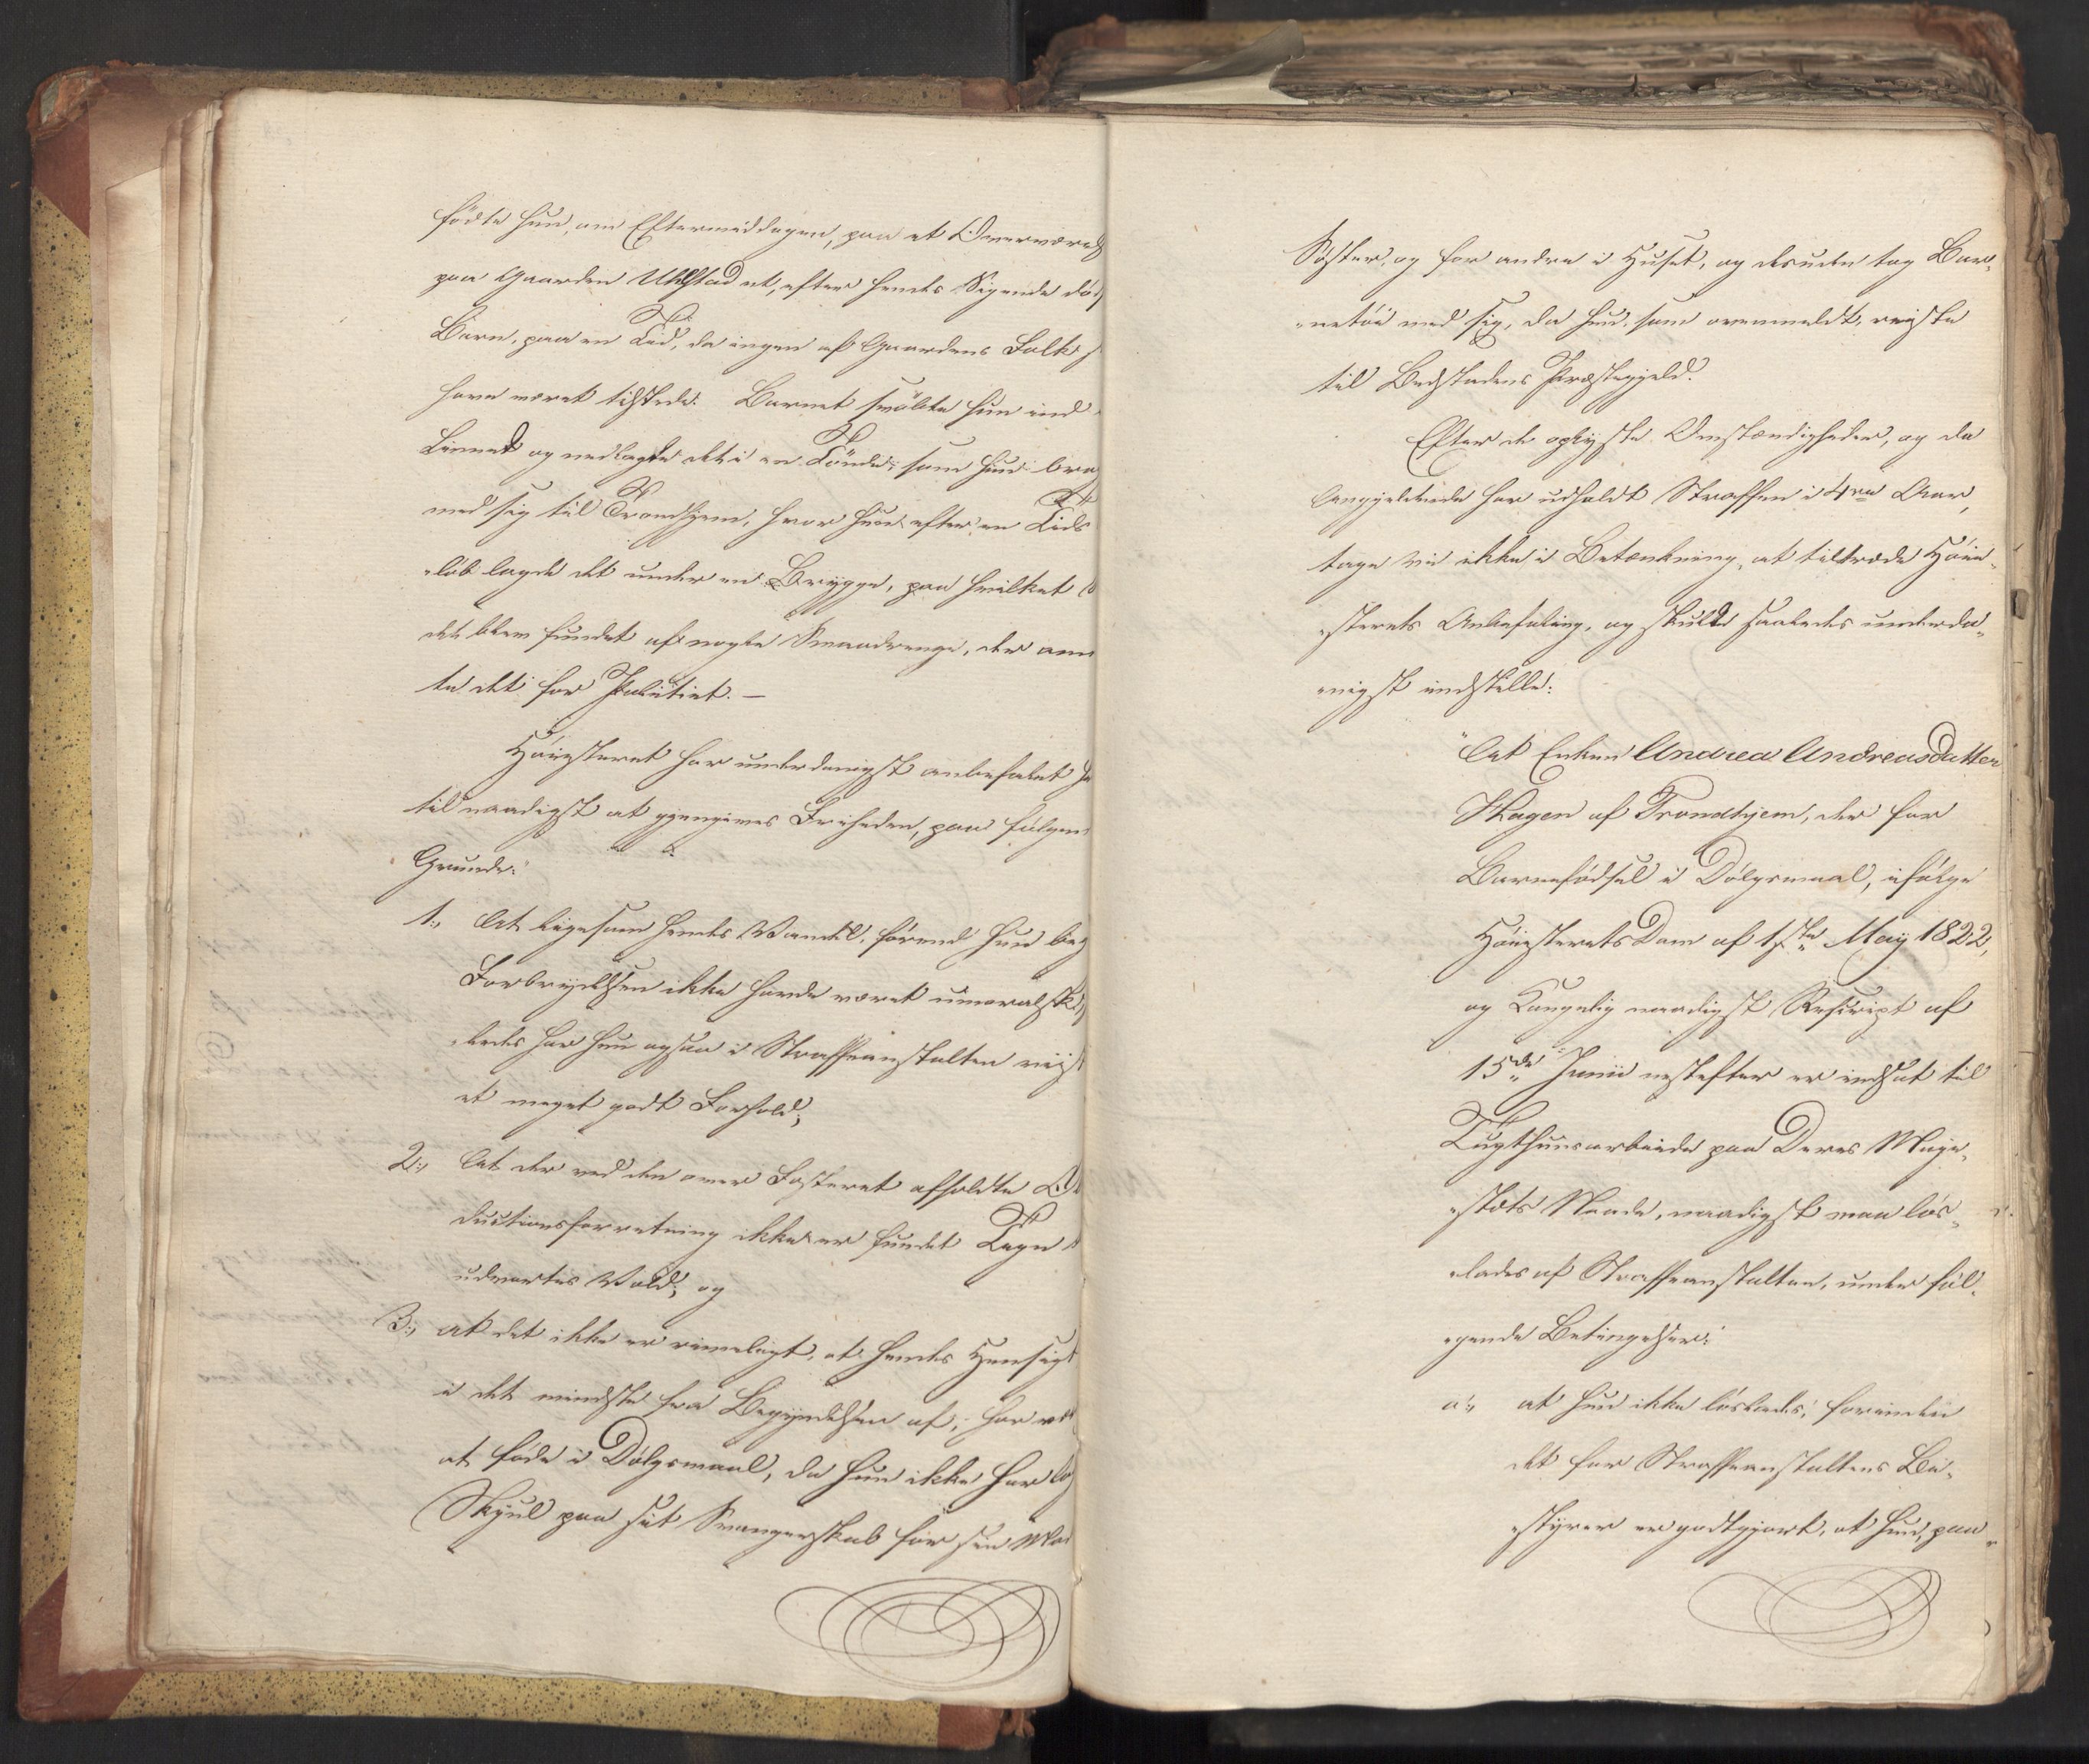 födte hun, om Eftermiddagen, paa et Overværels
paa Gaarden Uhlstad et, efter hendes Sigende, död
Barn, paa en Tid, da ingen af Gaardens Folk s
have været tilstede. Barnet svöbte hun ind
Linned og nedlagde det i en Tönde, som hun bra
med sig til Trondhjem, hvor hun efter en Tids
löb lagde det under en Brygge, paa hvilket S
det blev fundet af nogle Smaadrenge, der anm
te det for Politiet. –
Höiesteret har underdanigst anbefalet he
til naadigst at gjengives Friheden, paa fölgen
Grunde:
1., At ligesom hendes Vandel, förend hun beg
Forbrydelsen ikke havde været umoralsk,
ledes har hun ogsaa i Straffeanstalten viist
et meget godt Forhold;
2., At der ved den over Fosteret afholdte Ob
ductionsforretning ikke er fundet Tegn t
udvortes Vold; og
3., at det ikke er rimeligt, at hendes Hensigt
i det mindste fra Begyndelsen af, har væ
at föde i Dölgsmaal, da hun ikke har lag
Skjul paa sit Svangerskab for sin Mo
Söster, og for andre i Huset, og desuden tog Bar„
„netöi med sig, da hun, som ovenmeldt, reiste
til Bedstadens Præstegjeld.
Efter de oplyste Omstændigheder, og da
Angjeldende har udholdt Straffen i 4re Aar,
tage vi ikke i Betænkning, at tiltræde Höie„
„sterets Anbefaling, og skulde saaledes underda„
„nigst indstille:
"At Enken Andrea Andreasdatter
Hagen af Trondhjem, der for
Barnefödsel i Dölgsmaal, ifölge
Höiesterets Dom af 17de May 1822,
og Kongelig naadigst Rescript af
15de Junii nestefter er indsat til
Tugthuusarbeide paa Deres Maje„
„stæts Naade, naadigst maa lös„
„lades af Straffeanstalten, under föl„
„gende Betingelser:
a., at hun ikke löslades, forinden
det for Straffeanstaltens Be„
„styrer er godtgjort, at hun, paa